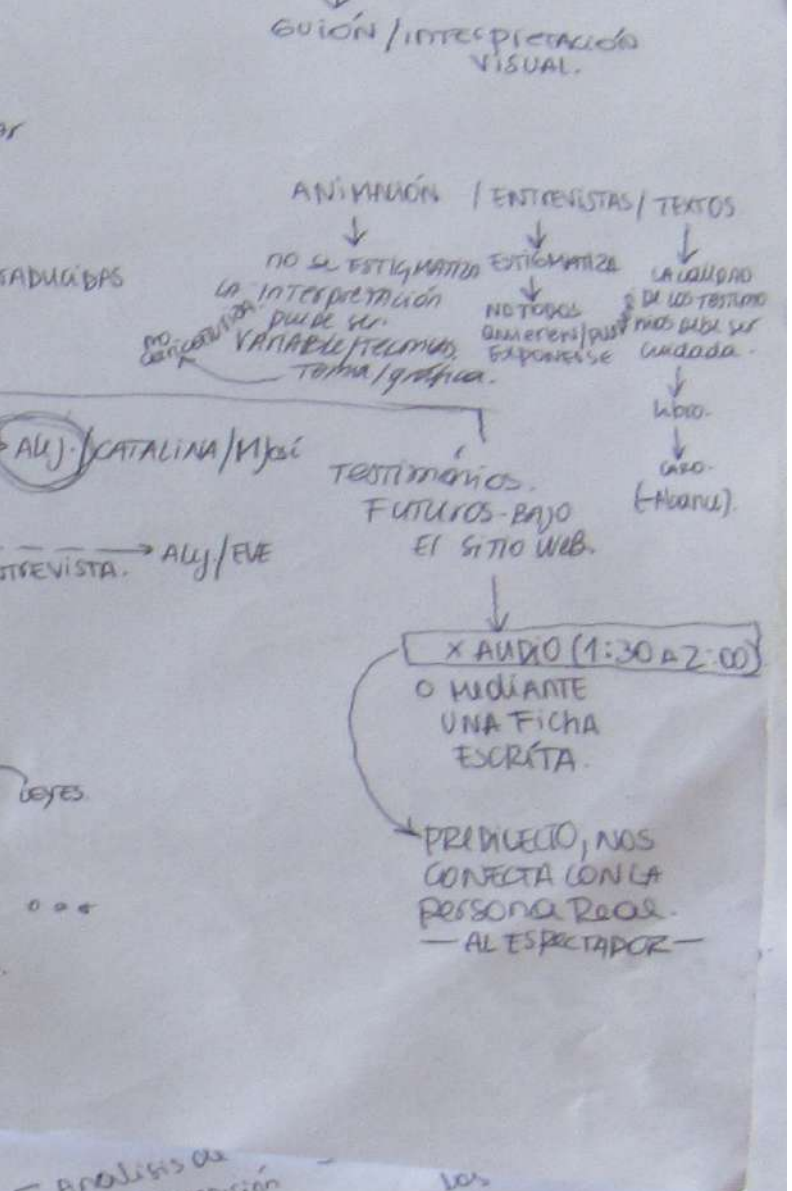 GUIÓN/INTERPRETACIÓN
VISUAL.
ANIMACIÓN / ENTREVISTAS / TEXTOS
NO SE ESTIGMATIZA
LA INTERPRETACIÓN
PUEDE SER
VARIABLE/
TOMA/gráfica.
ESTIGMATIZA
NO TODOS
quieren/
EXPONERSE
LA CALIDAD
DE LOS TESTIMO
nios debe ser
cuidada.
libro.
CASO.
TRADUCIDAS
ALEJ./CATALINA/MJosé
ALEJ/EVE
Testimonios.
FUTUROS-BAJO
El SITIO WEB.
X AUDIO (1:30 A 2:00)
O MEDIANTE
UNA FICHA
ESCRITA.
LEYES.
PREDILECTO, NOS
CONECTA CON LA
persona Real.
— AL ESPECTADOR —
— Analisis de